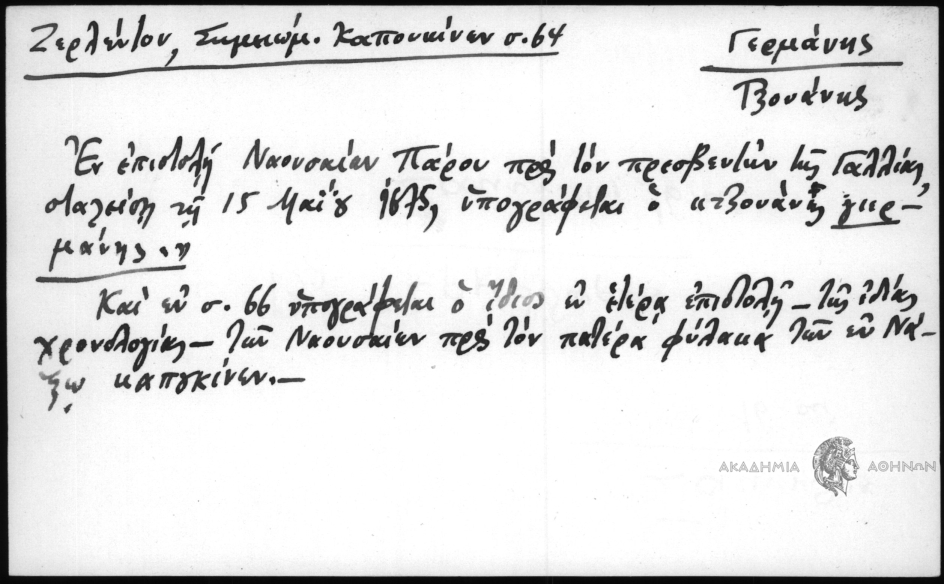 Ζερλέντου, Σημειώμ. Καπουκίνων σ. 64
Γερμάνης
Τζουάνης
Ἐν ἐπιστολῇ Ναουσαίων Πάρου πρὸς τὸν πρεσβευτὴν τῆς Γαλλίας,
σταλείσῃ τῇ 15 Μαΐου 1675, ὑπογράφεται ὁ «τζουάνης γερ-
μάνης.»
Καὶ ἐν σ. 66 ὑπογράφεται ὁ ἴδιος ἐν ἑτέρᾳ ἐπιστολῇ – τῆς ἰδίας
χρονολογίας – τῶν Ναουσαίων πρὸς τὸν πατέρα φύλακα τῶν ἐν Νά-
ξῳ καπουκίνων. –
ΑΚΑΔΗΜΙΑ ΑΘΗΝΩΝ